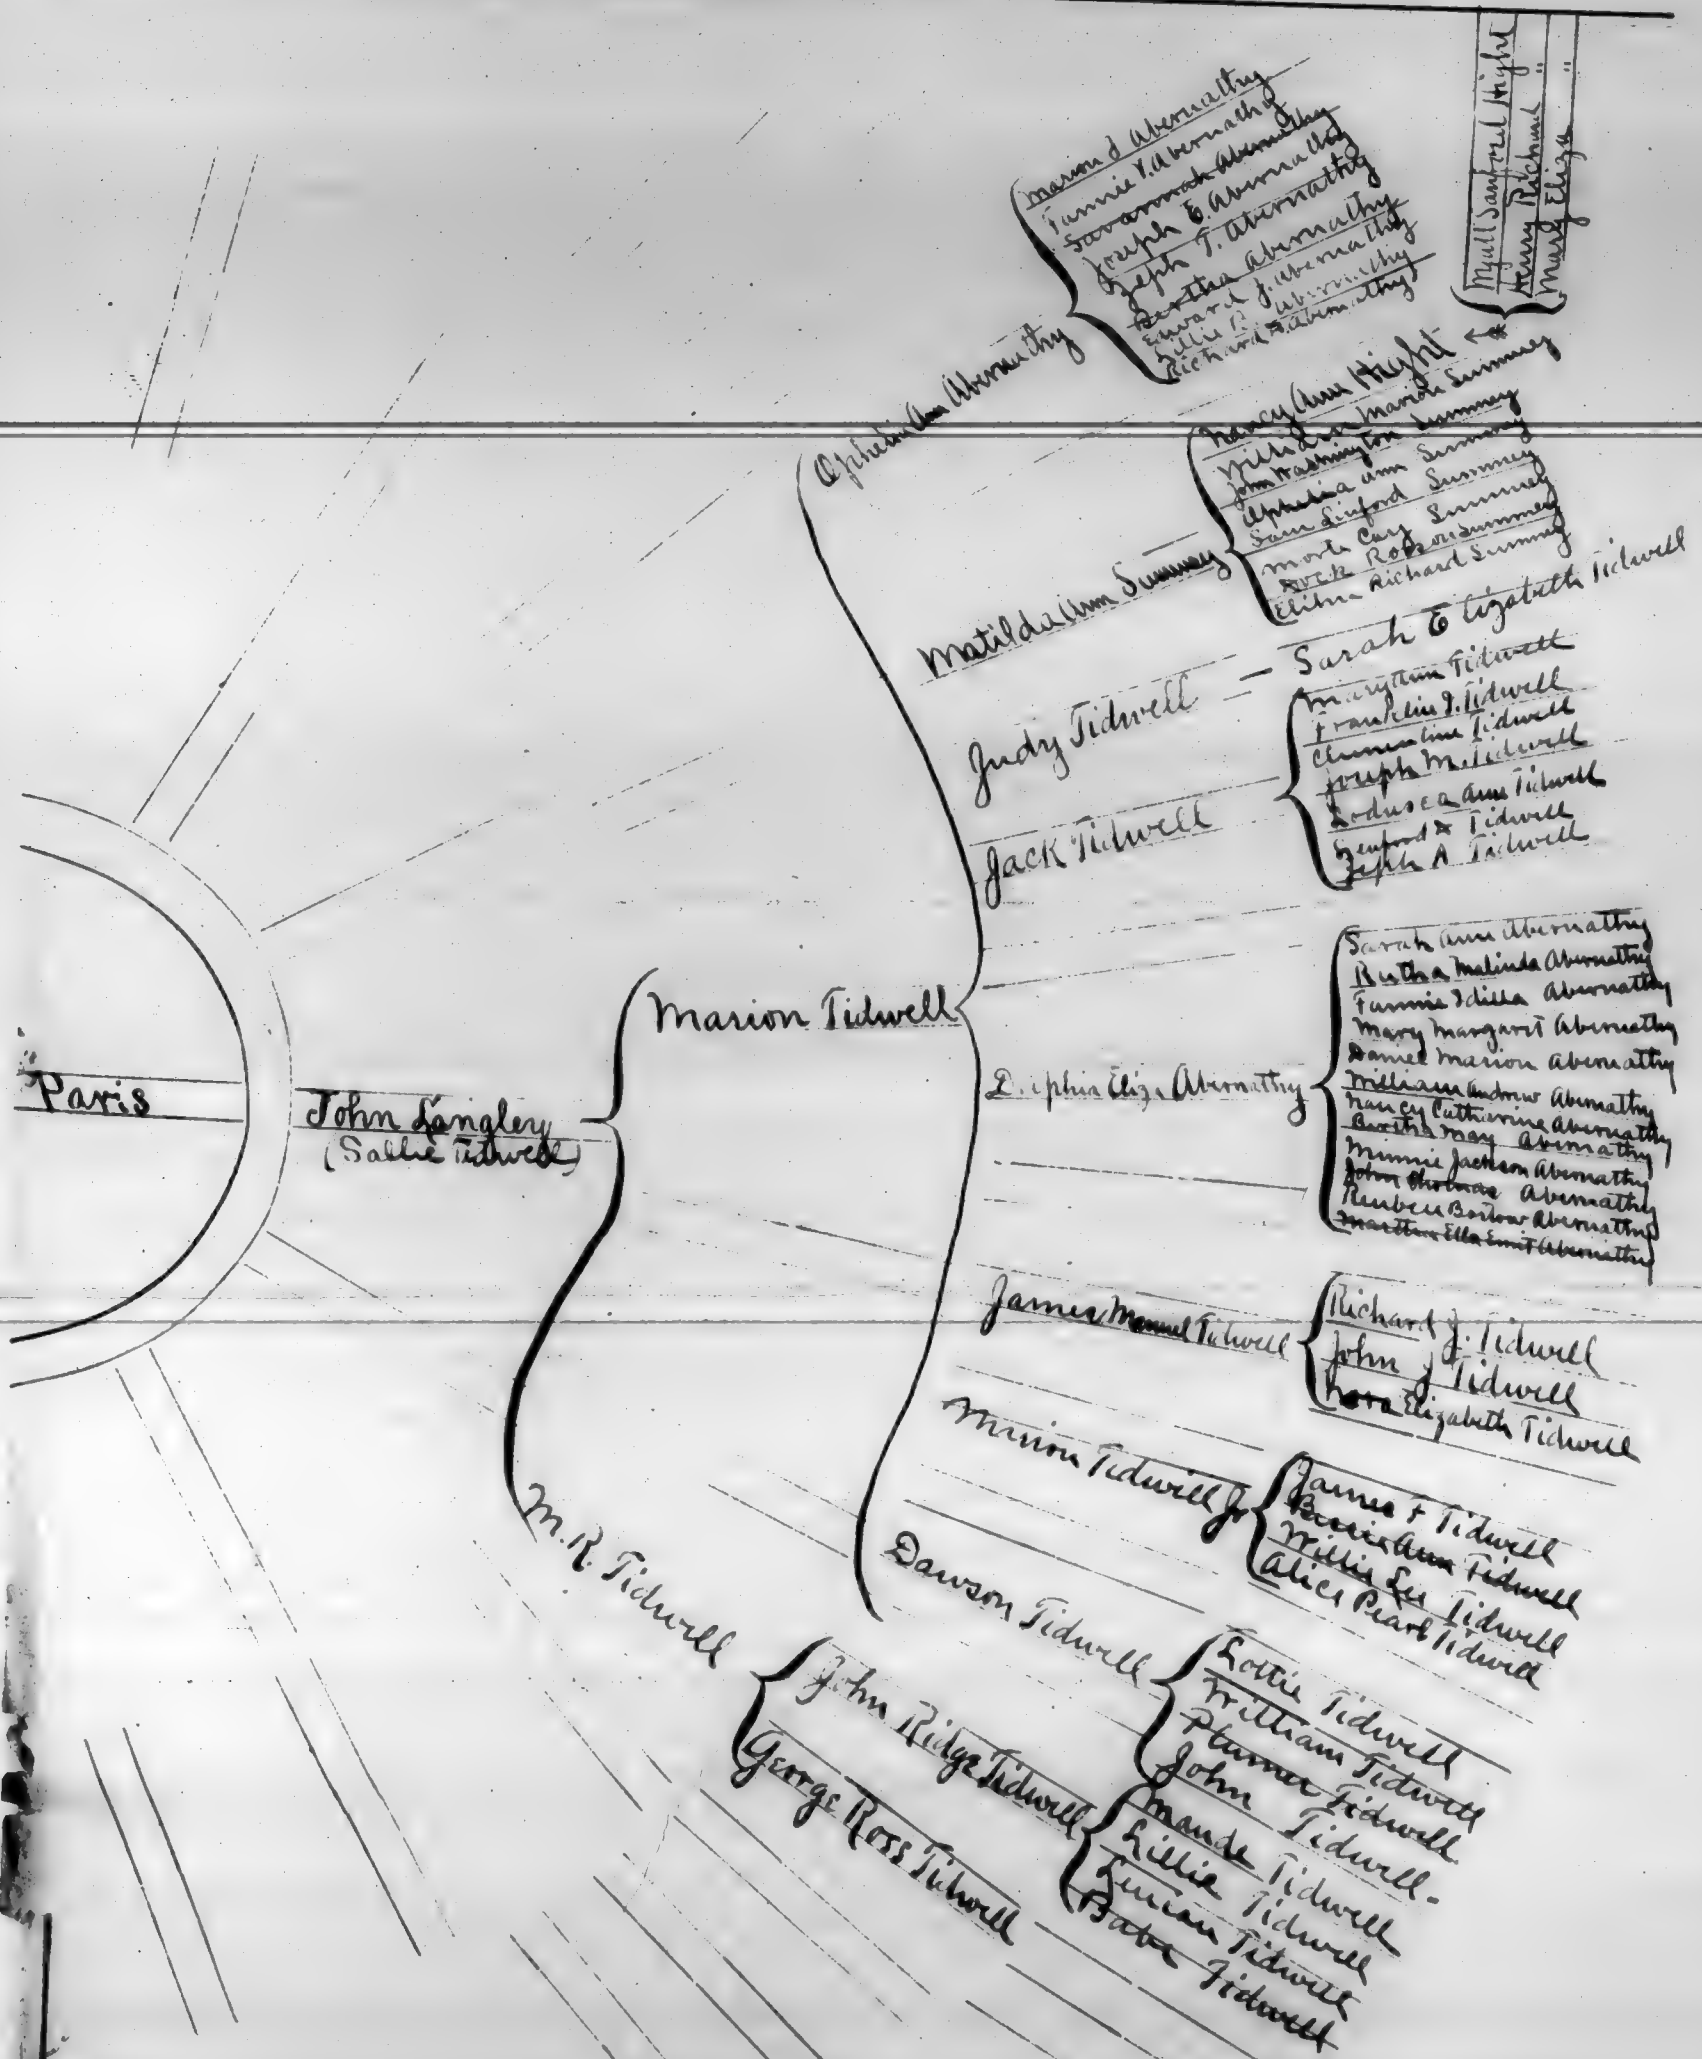 Paris
John Langley
(Sallie Tidwell)
Marion Tidwell
M.R. Tidwell
Ophelia Ann Abernathy
Marion J Abernathy
Fannie V. Abernathy
Savannah Abernathy
Joseph E. Abernathy
Zeph T. Abernathy
Bertha Abernathy
Edward J. Abernathy
Lillie R. Abernathy
Richard Abernathy
Matilda Ann Summey
Nancy Ann Hight
Myall Sanford Hight
Henry Richmd "
Mary Eliza "
William Marion Summey
John Washington Summey
Ophelia Ann Summey
Sam Sinford Summey
Morte Cary Summey
Dock Robson Summey
Elihu Richard Summey
Judy Tidwell — Sarah Elizabeth Tidwell
Jack Tidwell
Mary Ann Tidwell
Franklin J. Tidwell
Clementine Tidwell
Joseph M. Tidwell
Ledusca Ann Tidwell
Tidwell
Zeph A Tidwell
Eliza Abernathy
Sarah Ann Abernathy
Rutha Malinda Abernathy
Fannie Idilla Abernathy
Mary Margaret Abernathy
Daniel Marion Abernathy
William Andrew Abernathy
Nancy Catherine Abernathy
Bertha May Abernathy
Minnie Jackson Abernathy
John Thomas Abernathy
Reuben Barlow Abernathy
Martha Ella Emit Abernathy
James Manuel Tidwell
Richard J. Tidwell
John J Tidwell
Nora Elizabeth Tidwell
Marion Tidwell Jr
James F Tidwell
Bessie Ann Tidwell
Willie Lee Tidwell
Alice Pearl Tidwell
Dawson Tidwell
Lottie Tidwell
William Tidwell
Plumer Tidwell
John Tidwell
John Ridge Tidwell
Maude Tidwell
Lillie Tidwell
Lucian Tidwell
Babe Tidwell
George Ross Tidwell